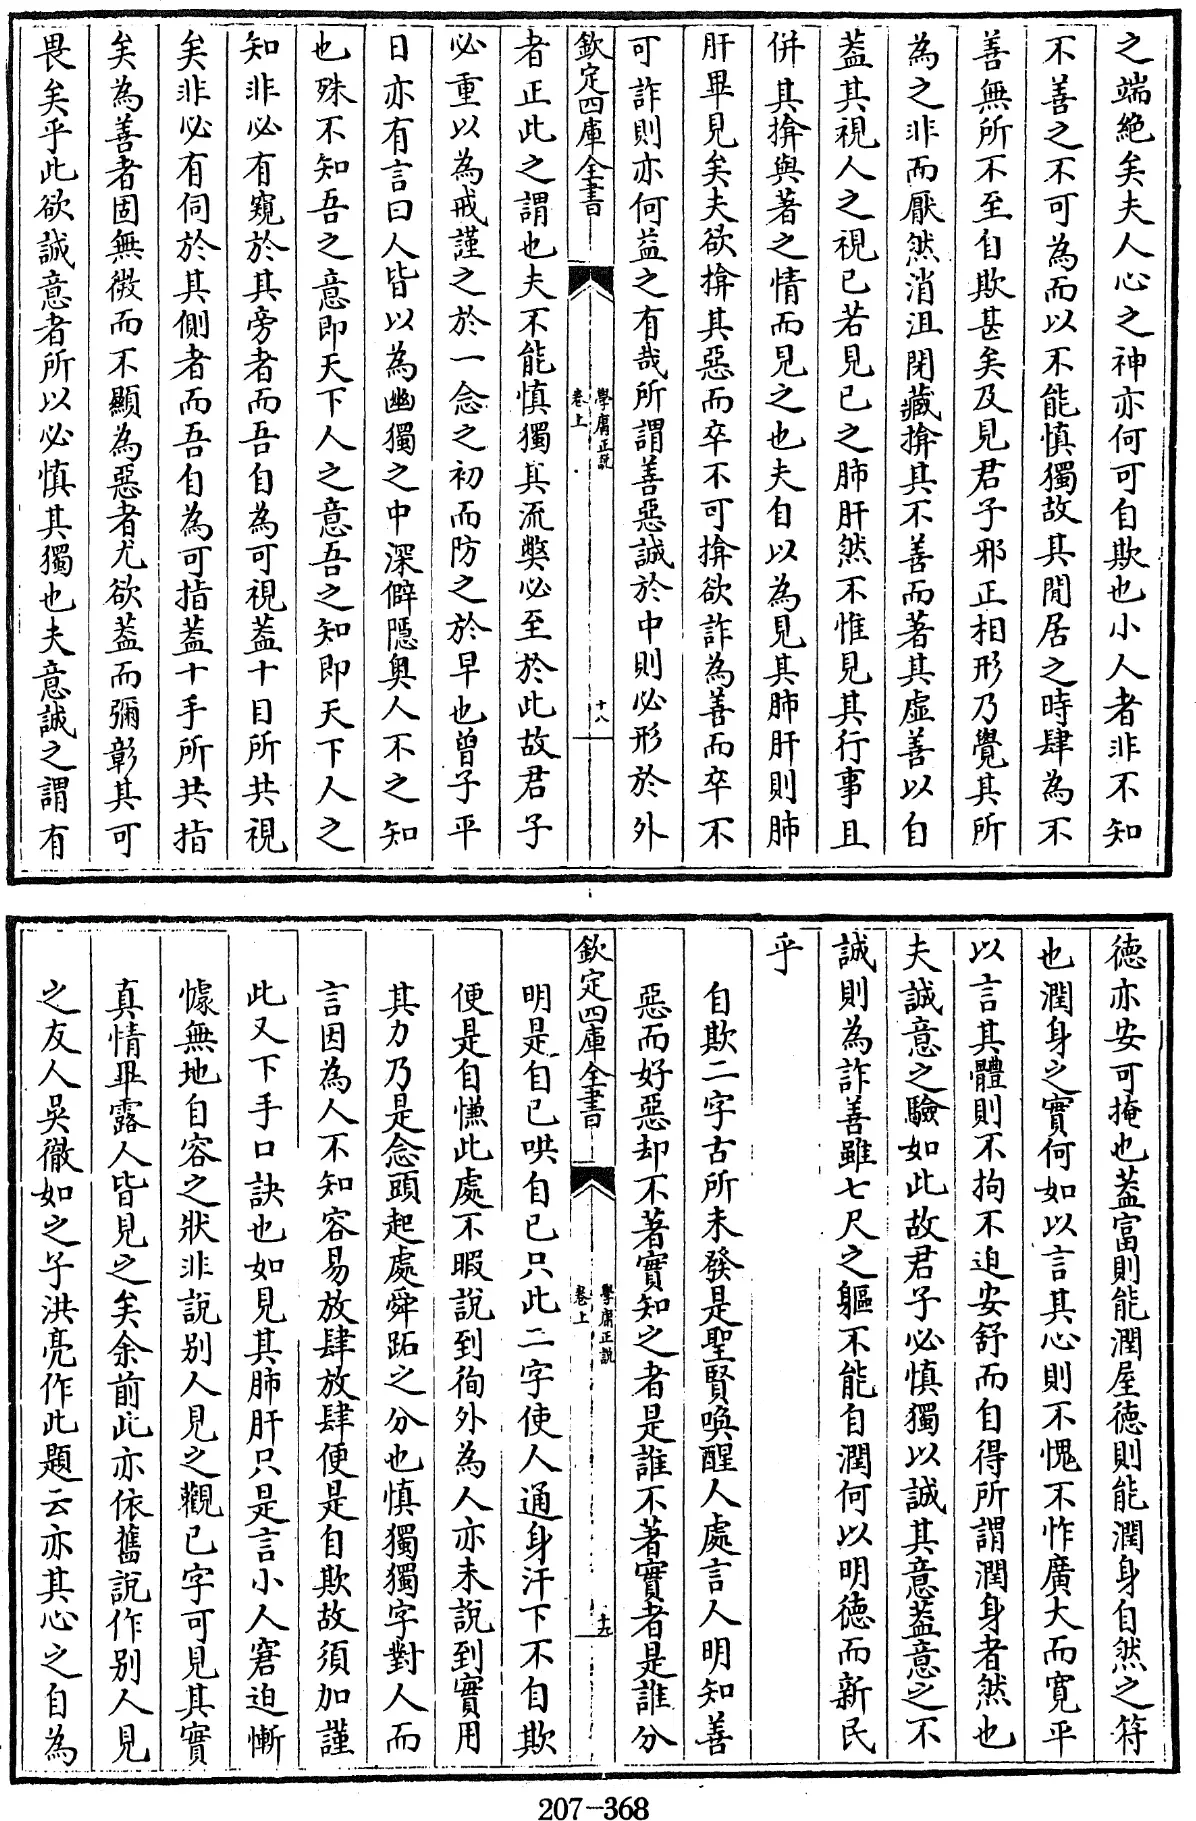 之端絶矣夫人心之神亦何可自欺也小人者非不知
不善之不可為而以不能慎獨故其間居之時肆為不
善無所不至自欺甚矣及見君子邪正相形乃覺其所
為之非而厭然消沮閉藏揜其不善而著其虛善以自
葢其視人之視已若見已之肺肝然不惟見其行事且
併其揜與著之情而見之也夫自以為見其肺肝則肺
肝畢見矣夫欲揜其惡而卒不可揜欲詐為善而卒不
可詐則亦何益之有哉所謂善惡誠於中則必形於外
欽定四庫全書
學庸正説
卷上
十八
者正此之謂也夫不能慎獨其流獘必至於此故君子
必重以為戒謹之於一念之初而防之於早也曽子平
日亦有言曰人皆以為幽獨之中深僻隠奥人不之知
也殊不知吾之意即天下人之意吾之知即天下人之
知非必有窺於其旁者而吾自為可視葢十目所共視
矣非必有伺於其側者而吾自為可指葢十手所共指
矣為善者固無微而不顯為惡者尤欲葢而彌彰其可
畏矣乎此欲誠意者所以必慎其獨也夫意誠之謂有
徳亦安可掩也葢富則能潤屋徳則能潤身自然之符
也潤身之實何如以言其心則不愧不怍廣大而寛平
以言其體則不拘不迫安舒而自得所謂潤身者然也
夫誠意之驗如此故君子必慎獨以誠其意葢意之不
誠則為詐善雖七尺之軀不能自潤何以明徳而新民
乎
自欺二字古所未發是聖賢喚醒人處言人明知善
惡而好惡却不著實知之者是誰不著實者是誰分
欽定四庫全書
學庸正説
卷上
十九
明是自已哄自已只此二字使人通身汗下不自欺
便是自慊此處不暇説到徇外為人亦未説到實用
其力乃是念頭起處舜跖之分也慎獨獨字對人而
言因為人不知容易放肆放肆便是自欺故須加謹
此又下手口訣也如見其肺肝只是言小人窘迫慚
懅無地自容之狀非説别人見之觀已字可見其實
真情畢露人皆見之矣余前此亦依舊説作别人見
之友人吳徹如之子洪亮作此題云亦其心之自為
207-368